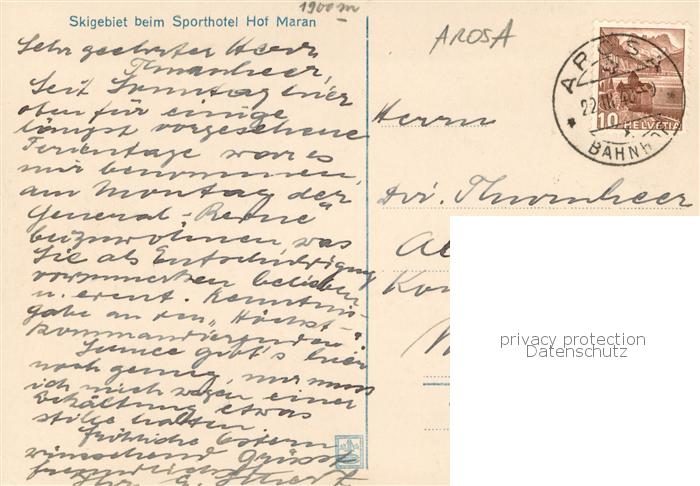 1900 m
Skigebiet beim Sporthotel Hof Maran
AROSA
AROSA
22.III.
BAHNH
10 HELVETIA
Sehr geehrter Herr
Thurnheer,
Seit Sonntag hier
oben für einige
längst vorgesehene
Ferientage war es
mir benommen,
am Montag der
"General-Revue"
beizuwohnen, was
Sie als Entschuldigung
vormerken belieben
u. event. Kenntnis-
gabe an den "Höchst-
kommandierenden".
Sunnee gibt's hier
noch genug, nur muss
ich mich wegen einer
Erkältung etwas
stille halten.
Fröhliche Ostern
wünschend grüsst
freundlichst
Ihr
Herrn
Thurnheer
privacy protection
Datenschutz